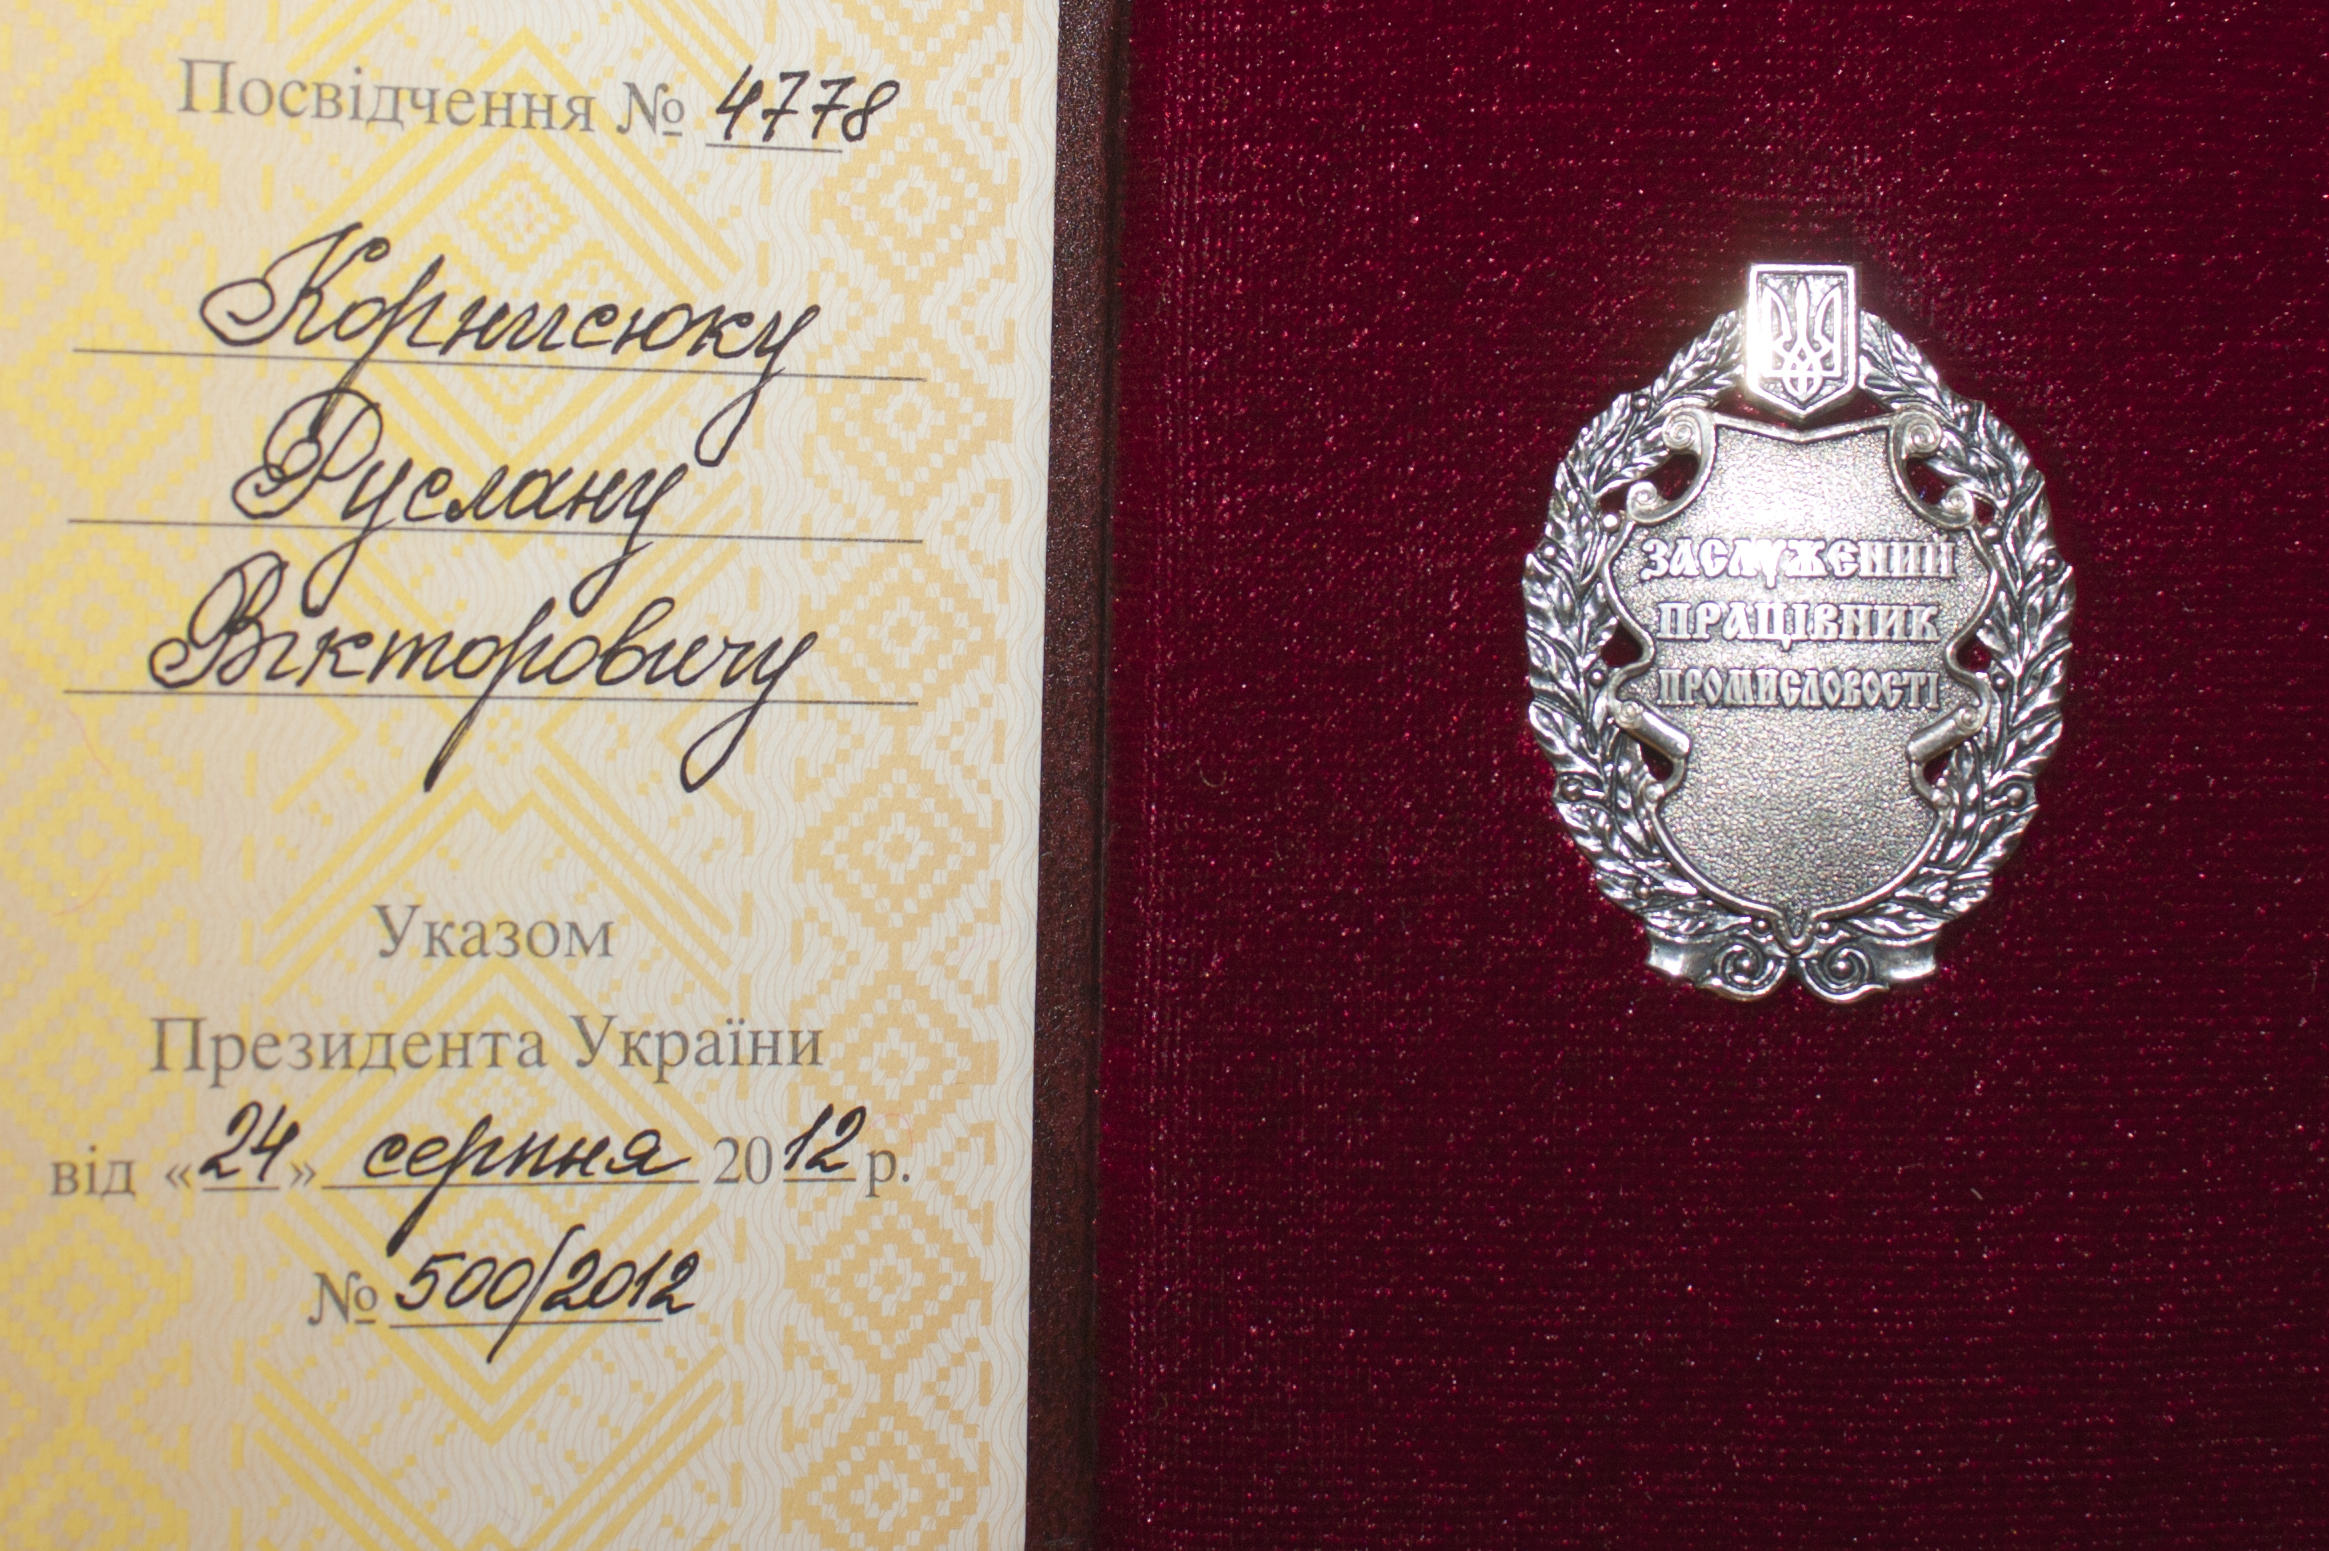 Посвідчення № 4778
Корнисюку
Руслану
Вікторовичу
Указом
Президента України
від «24» серпня 2012 р.
№ 500/2012
ЗАСЛУЖЕНИЙ
ПРАЦІВНИК
ПРОМИСЛОВОСТІ